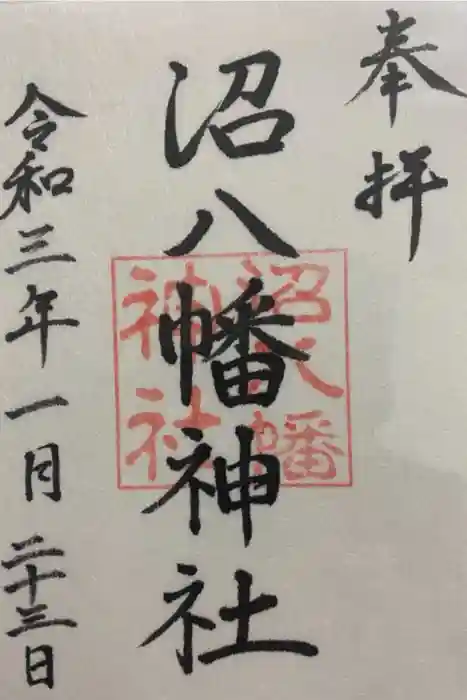 奉拝
沼八幡神社
沼八幡
神社
令和三年一月二十三日